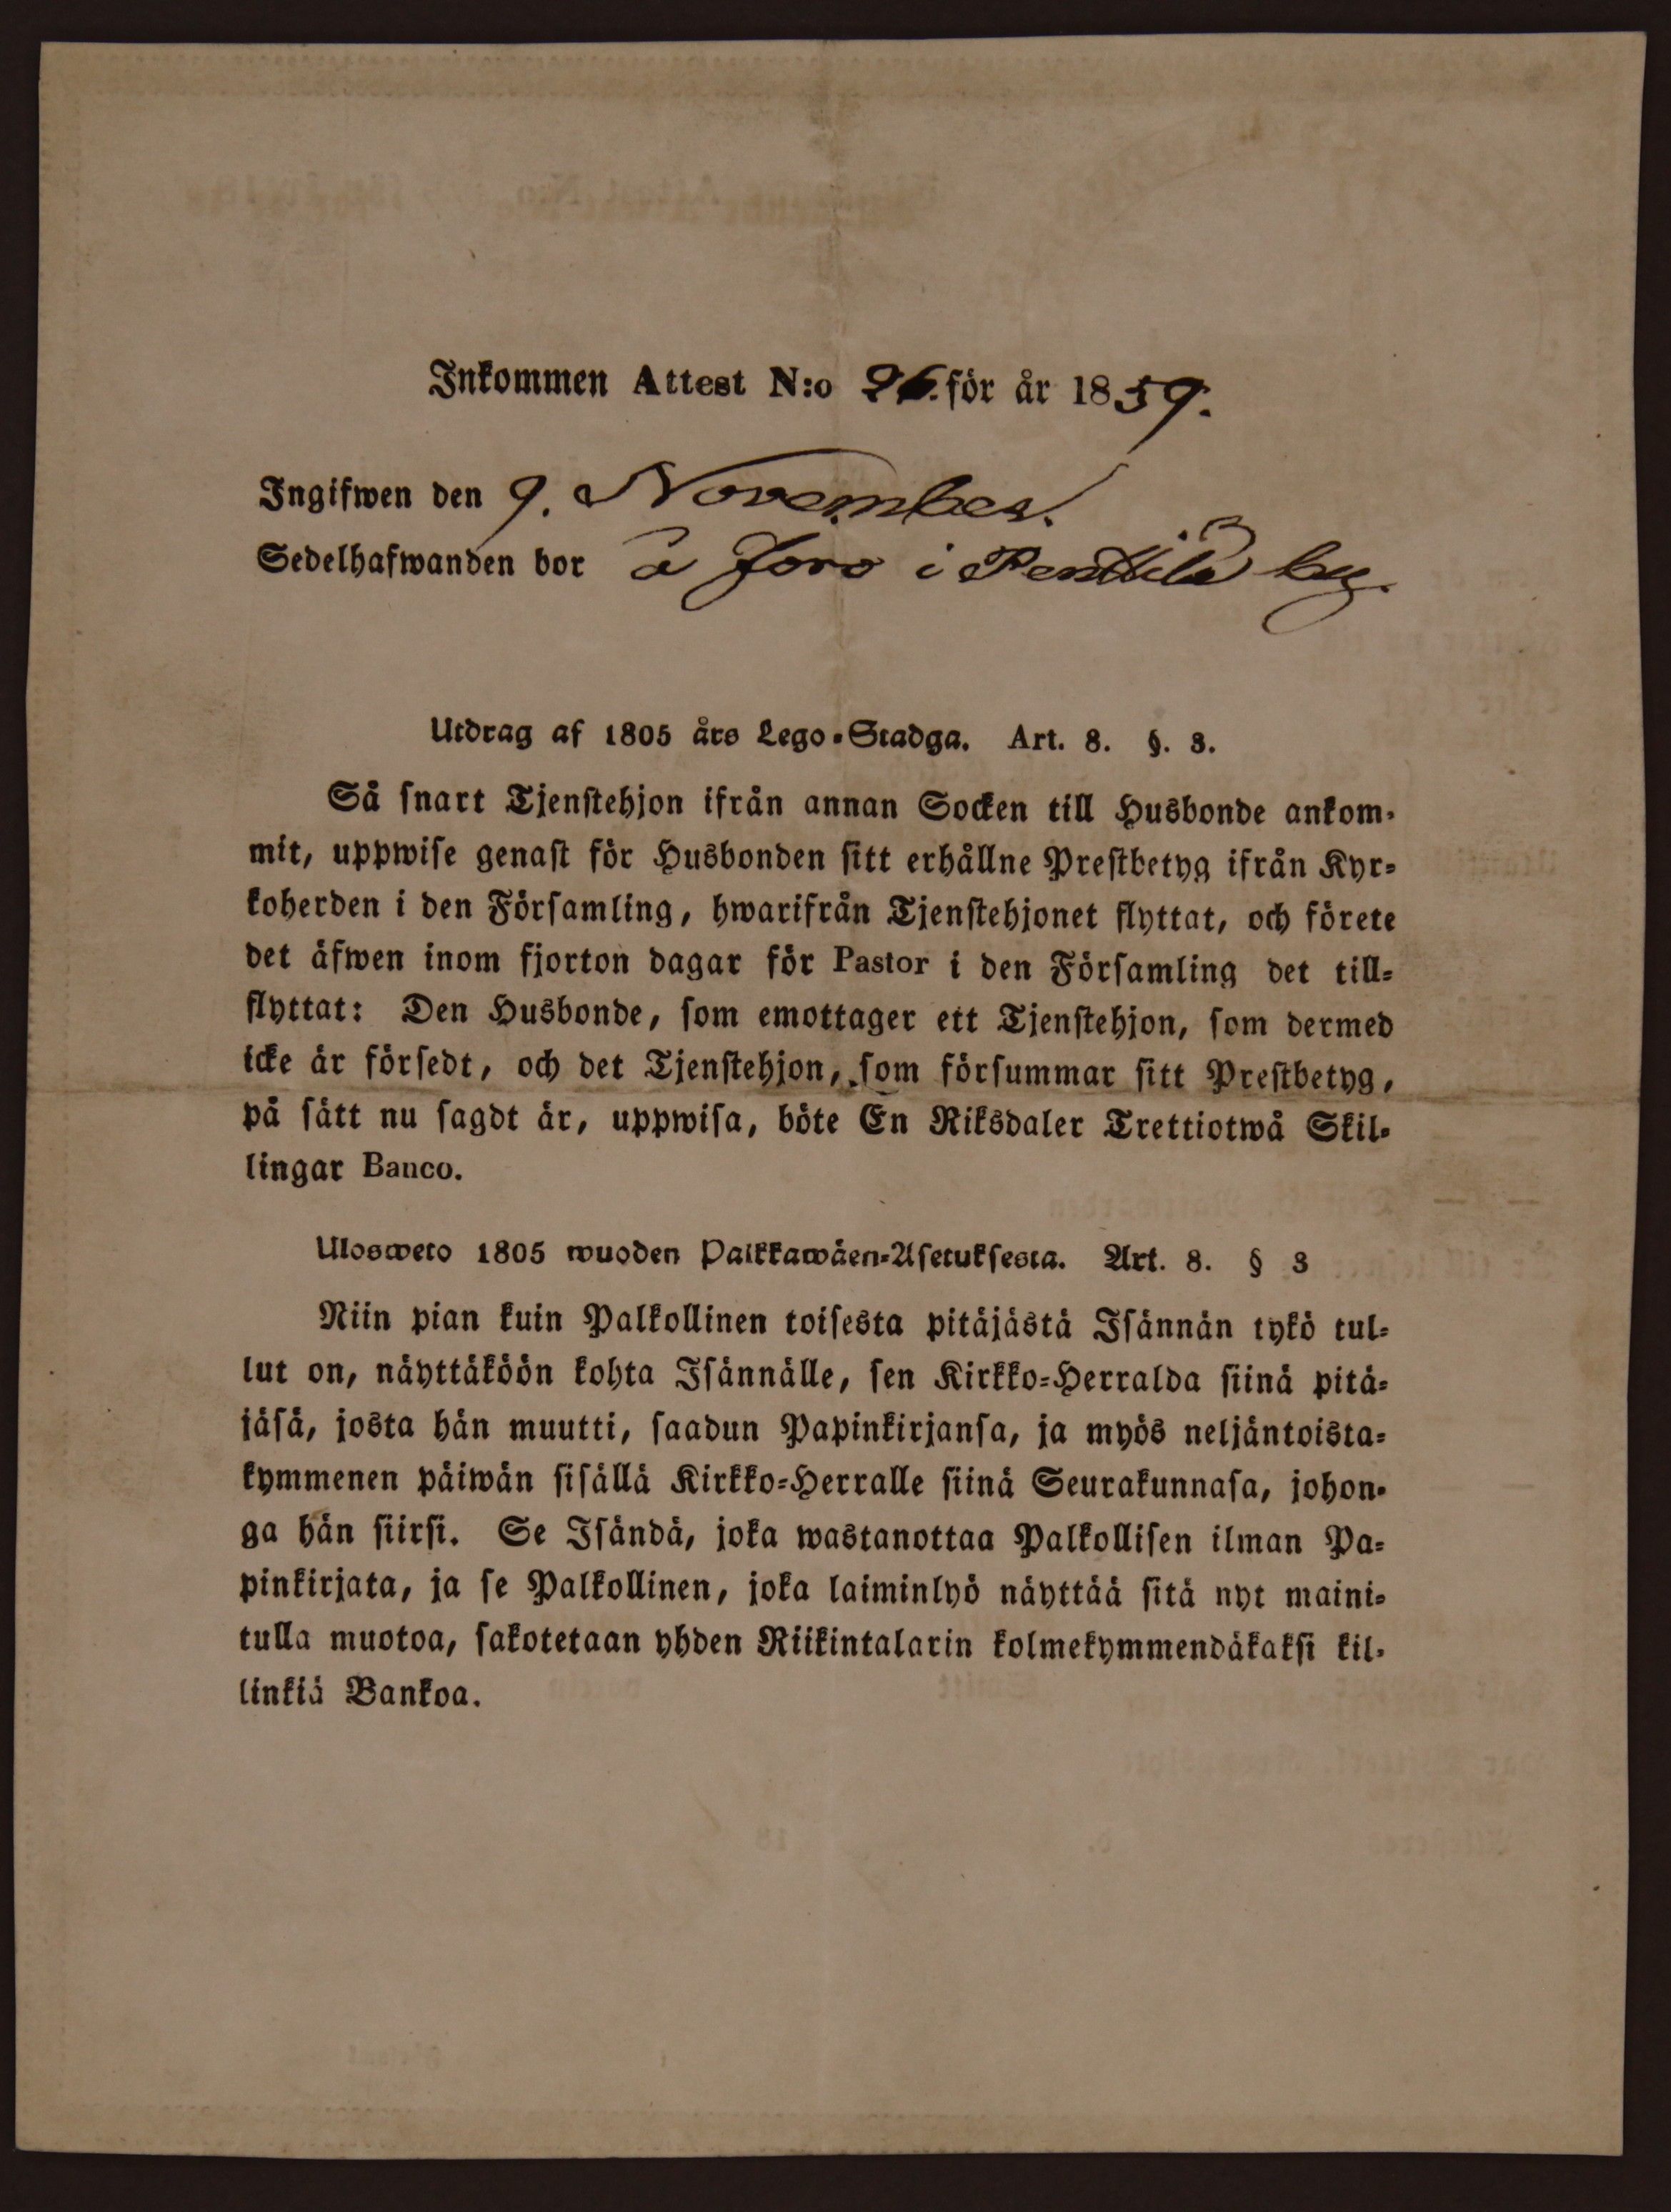 Inkommen Attest N:o 26. för år 1859.
Ingifwen den 9. November.
Sedelhafwanden bor å Joro i Penttilä by.
Utdrag af 1805 års Lego-Stadga. Art. 8. §. 3.
Så snart Tjenstehjon ifrån annan Socken till Husbonde ankom-
mit, uppwise genast för Husbonden sitt erhållne Prestbetyg ifrån Kyr-
koherden i den Församling, hwarifrån Tjenstehjonet flyttat, och förete
det äfwen inom fjorton dagar för Pastor i den Församling det till-
flyttat: Den Husbonde, som emottager ett Tjenstehjon, som dermed
icke är försedt, och det Tjenstehjon, som försummar sitt Prestbetyg,
på sätt nu sagdt är, uppwisa, böte En Riksdaler Trettiotwå Skil-
lingar Banco.
Ulosweto 1805 wuoden Palkkawäen-Asetuksesta. Art. 8. § 3
Niin pian kuin Palkollinen toisesta pitäjästä Isännän tykö tul-
lut on, näyttäköön kohta Isännälle, sen Kirkko-Herralda siinä pitä-
jäsä, josta hän muutti, saadun Papinkirjansa, ja myös neljäntoista-
kymmenen päiwän sisällä Kirkko-Herralle siinä Seurakunnasa, johon-
ga hän siirsi. Se Isändä, joka wastanottaa Palkollisen ilman Pa-
pinkirjata, ja se Palkollinen, joka laiminlyö näyttää sitä nyt maini-
tulla muotoa, sakotetaan yhden Riikintalarin kolmekymmendäkaksi kil-
linkiä Bankoa.